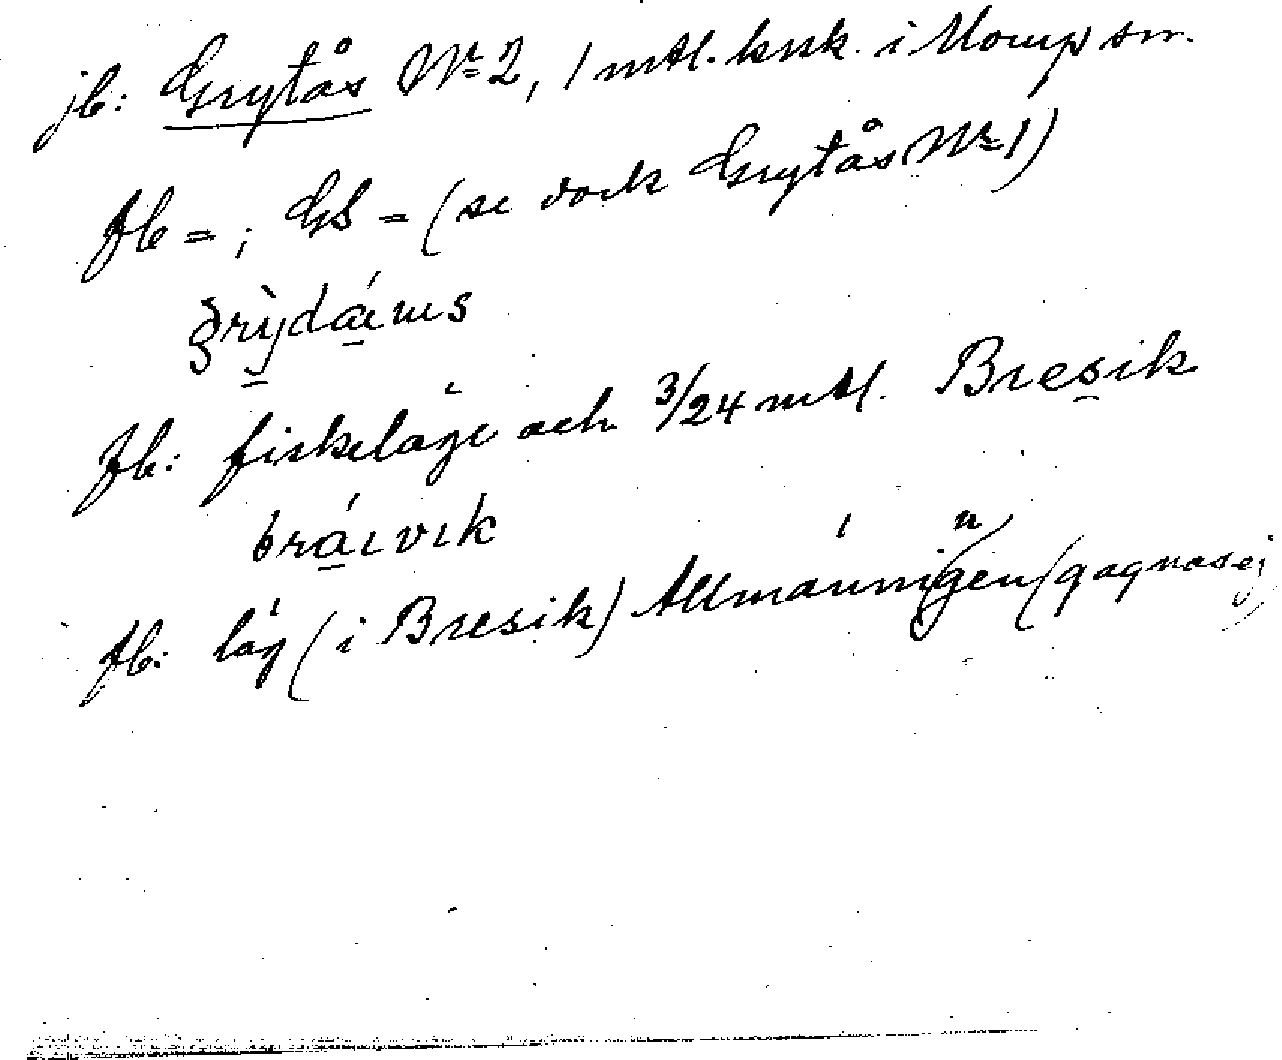 jb: Grytås No 2, 1 mtl. krsk. i Morup sn.
Jb =; GS = (se dock Grytås No 1)
grỳdáms
Jb: fiskeläge och 3/24 mtl. Bresik
bráɩvɩk
Jb: läg (i Bresik) Allmänningen (gagnas ej)